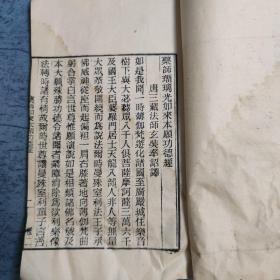 藥師琉璃光如來本願功德經
唐三藏法師玄奘奉詔譯
如是我聞一時薄伽梵遊化諸國至廣嚴城住樂音
樹下與大苾芻眾八千人俱菩薩摩訶薩三萬六千
及國王大臣婆羅門居士天龍八部人非人等無量
大眾恭敬圍繞而為說法爾時曼殊室利法王子承
佛威神從座而起偏袒一肩右膝著地向薄伽梵曲
躬合掌白言世尊惟願演說如是相類諸佛名號及
本大願殊勝功德令諸聞者業障消除為欲利樂像
法轉時諸有情故爾時世尊讚曼殊室利童子言善